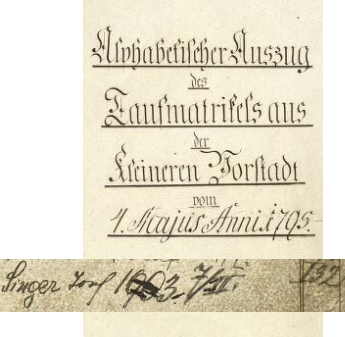 Alphabetischer Auszug
des
Taufmatrikels aus
der
Kleineren Vorstadt
vom
4. Majus Anni 1795.
Singer Josef 1903. 7/III. 132